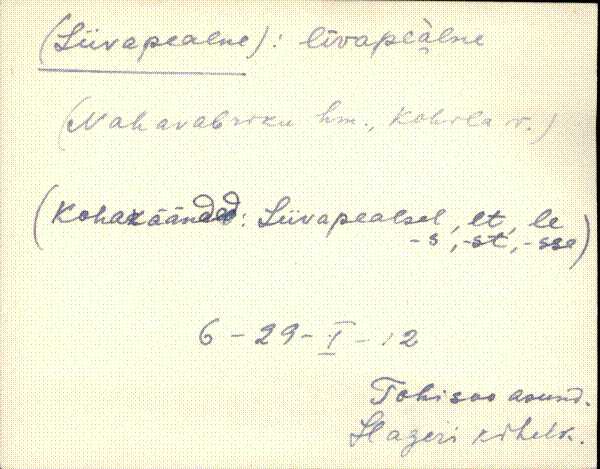 (Liivapealne): līvapèalne
(Nahavabriku hm., Kohila v.)
(Kohakäänded: Liivapealsel, -lt, -le
-s, -st, -sse)
6-29-I-12
Tohisoo asund.
Hageri kihelk.